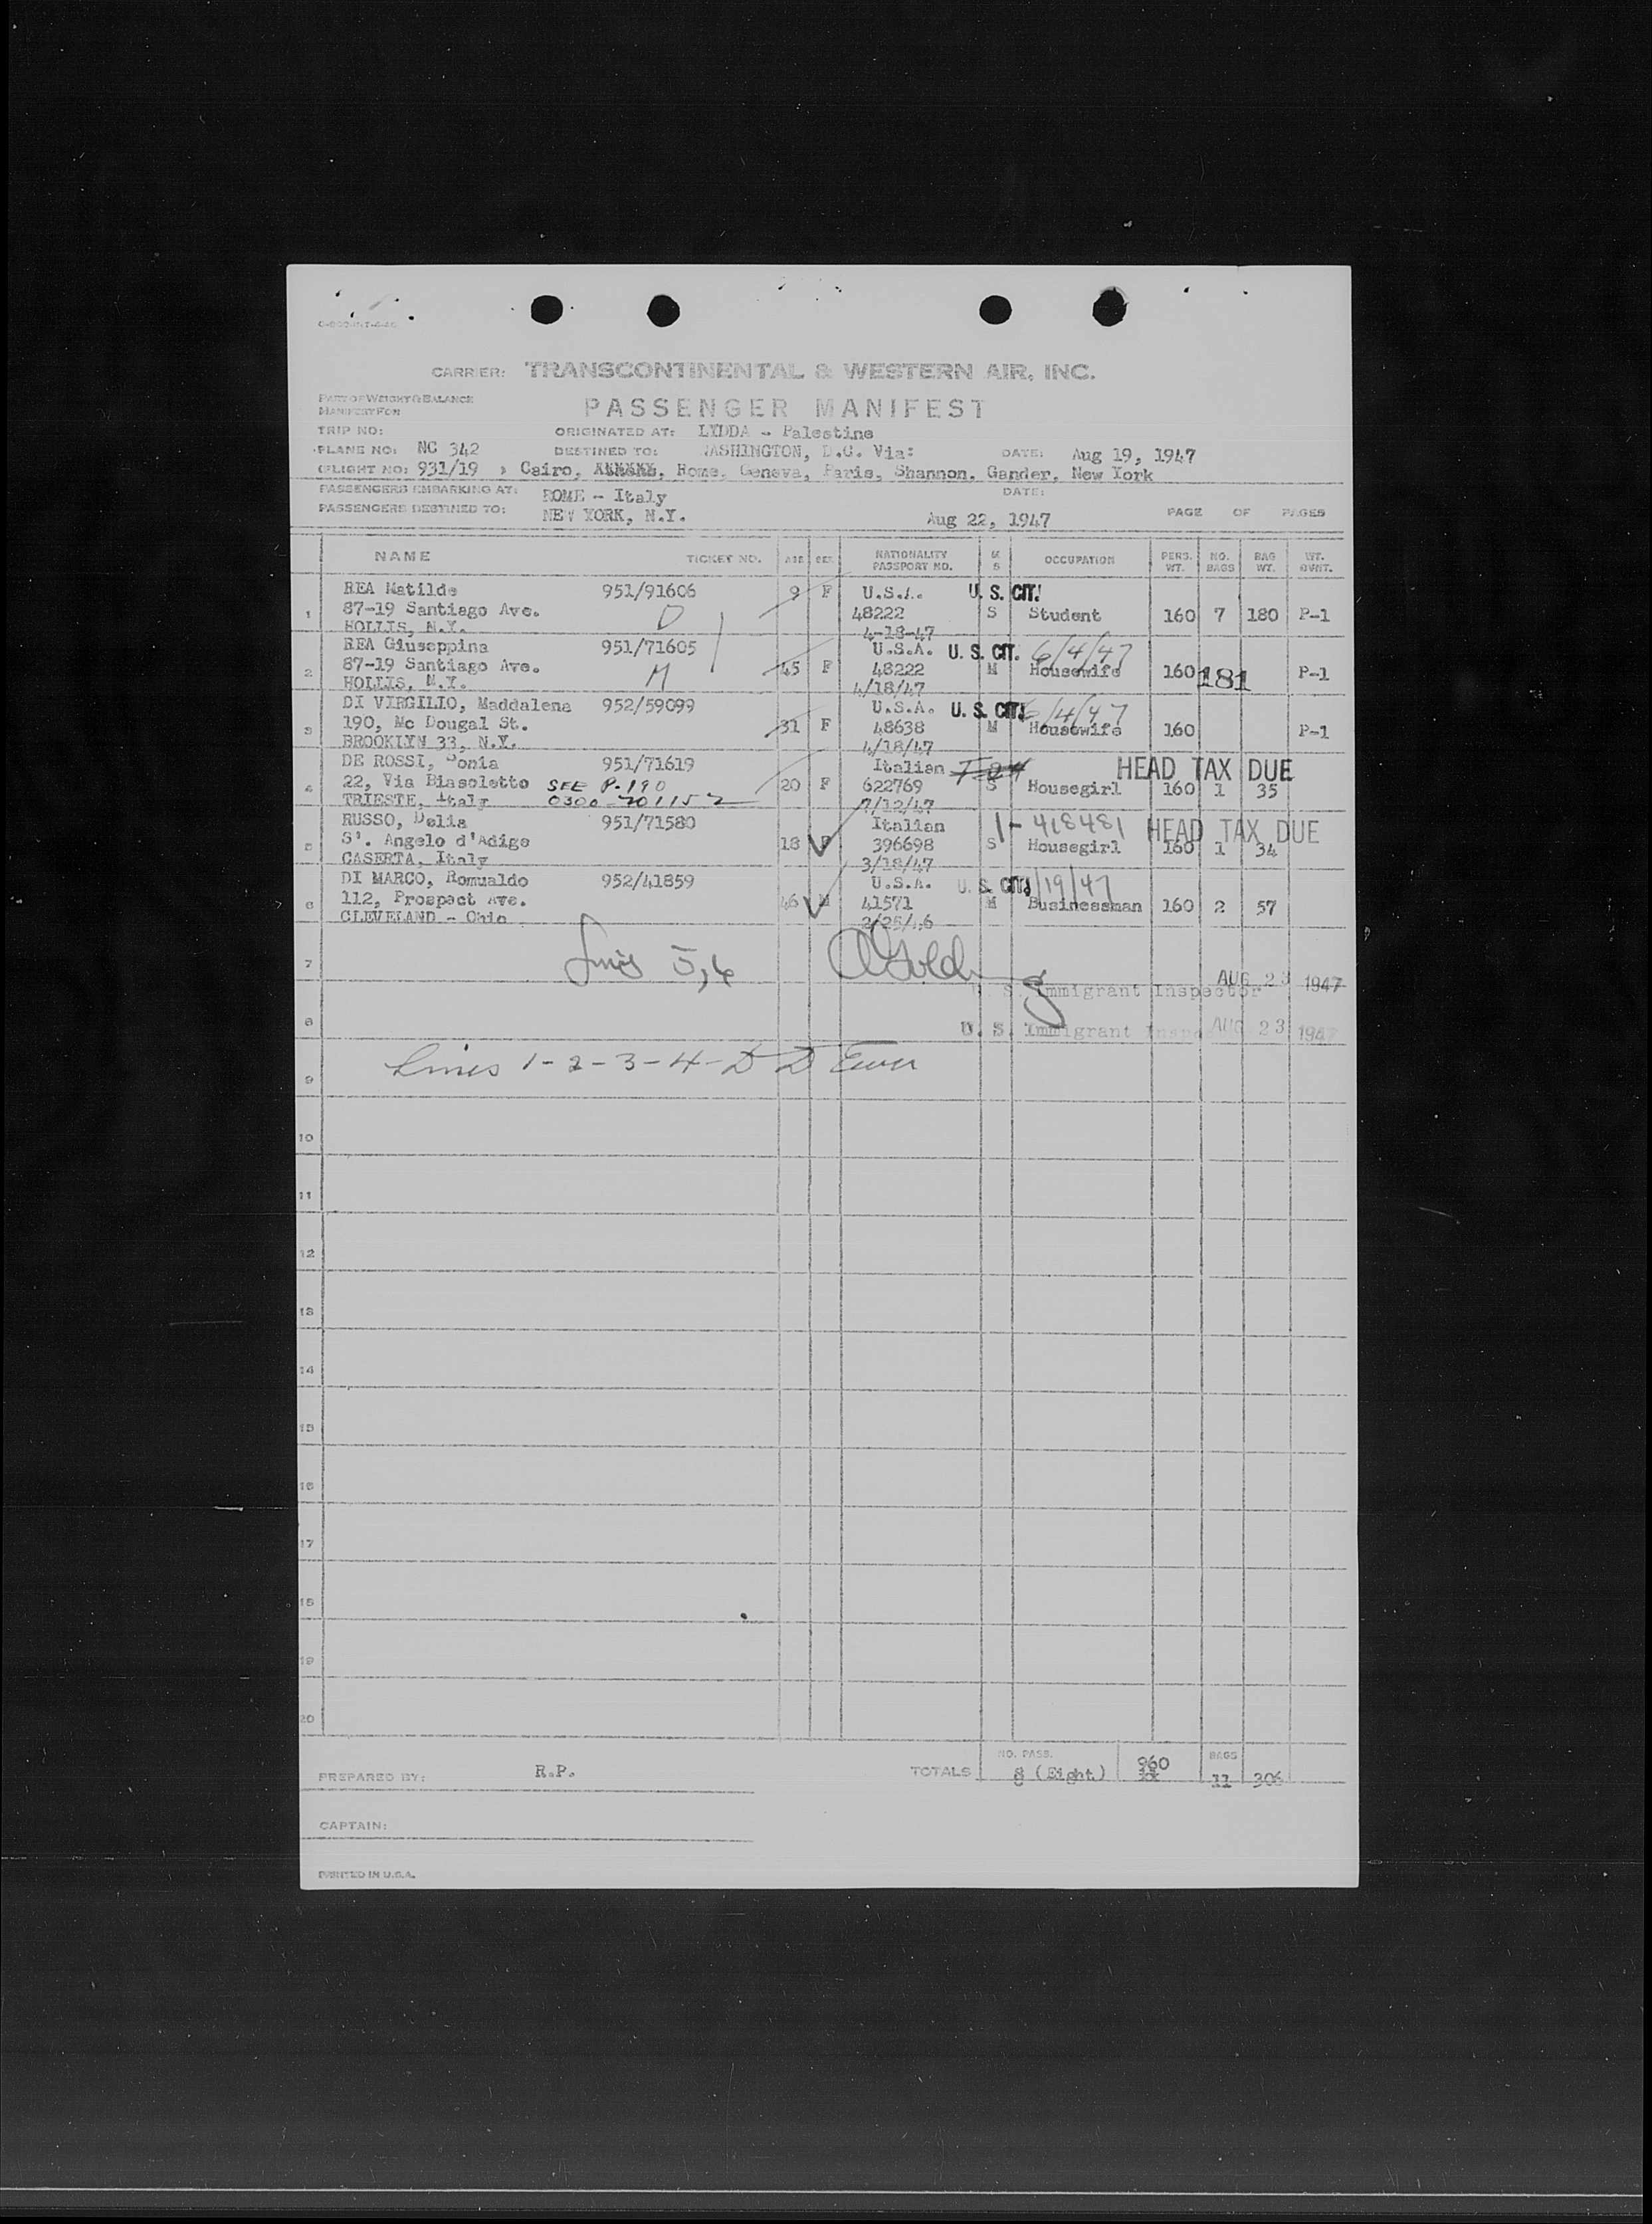 CARRIER: TRANSCONTINENTAL & WESTERN AIR, INC.
PART OF WEIGHT & BALANCE
MANIFEST FOR
PASSENGER MANIFEST
TRIP NO: ORIGINATED AT: LYDDA - Palestine
PLANE NO: NC 342 DESTINED TO: WASHINGTON, D.C. Via: DATE: Aug 19, 1947
FLIGHT NO: 931/19 Cairo, Rome, Geneva, Paris, Shannon, Gander, New York
PASSENGERS EMBARKING AT: ROME - Italy DATE:
PASSENGERS DESTINED TO: NEW YORK, N.Y. Aug 22, 1947 PAGE OF PAGES
NAME TICKET NO. AGE SEX NATIONALITY PASSPORT NO. M S OCCUPATION PERS. WT. NO. BAGS BAG WT. WT. GVNT.
REA Matilde 951/91606 9 F U.S.A. U. S. CIT.
1 87-19 Santiago Ave. D 48222 S Student 160 7 180 P-1
HOLLIS, N.Y. 4-18-47
REA Giuseppina 951/71605 U.S.A. U. S. CIT. 6/4/47
2 87-19 Santiago Ave. M 45 F 48222 M Housewife 160 181 P-1
HOLLIS, N.Y. 4/18/47
DI VIRGILIO, Maddalena 952/59099 U.S.A. U. S. CIT. 6/4/47
3 190, Mc Dougal St. 31 F 48638 M Housewife 160 P-1
BROOKLYN 33, N.Y. 4/18/47
DE ROSSI, Sonia 951/71619 Italian HEAD TAX DUE
4 22, Via Biasoletto SEE P-190 20 F 622769 S Housegirl 160 1 35
TRIESTE, Italy 0300-701152 7/12/47
RUSSO, Delia 951/71580 Italian 1-418481 HEAD TAX DUE
5 S'. Angelo d'Adige 18 F 396698 S Housegirl 160 1 34
CASERTA, Italy 3/18/47
DI MARCO, Romualdo 952/41859 U.S.A. U. S. CIT. /19/47
6 112, Prospect Ave. 46 M 41571 M Businessman 160 2 57
CLEVELAND - Ohio 2/25/46
7 Lines 5,6 AUG 23 1947
S. Immigrant Inspector
8 U. S. Immigrant AUG 23 1947
Lines 1-2-3-4-
9
10
11
12
13
14
15
16
17
18
19
20
PREPARED BY: R.P. TOTALS NO. PASS. 8 (Eight) 960 BAGS 11 306
CAPTAIN:
PRINTED IN U.S.A.